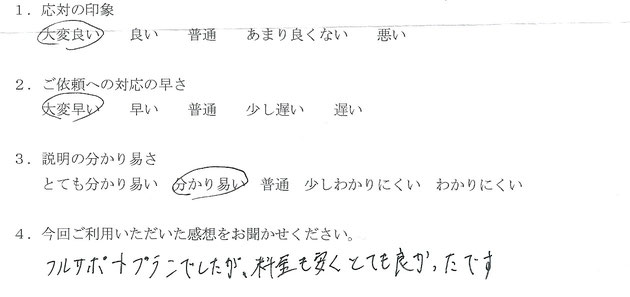 1．応対の印象
大変良い　良い　普通　あまり良くない　悪い
2．ご依頼への対応の早さ
大変早い　早い　普通　少し遅い　遅い
3．説明の分かり易さ
とても分かり易い　分かり易い　普通　少しわかりにくい　わかりにくい
4．今回ご利用いただいた感想をお聞かせください。
フルサポートプランでしたが、料金も安くとても良かったです